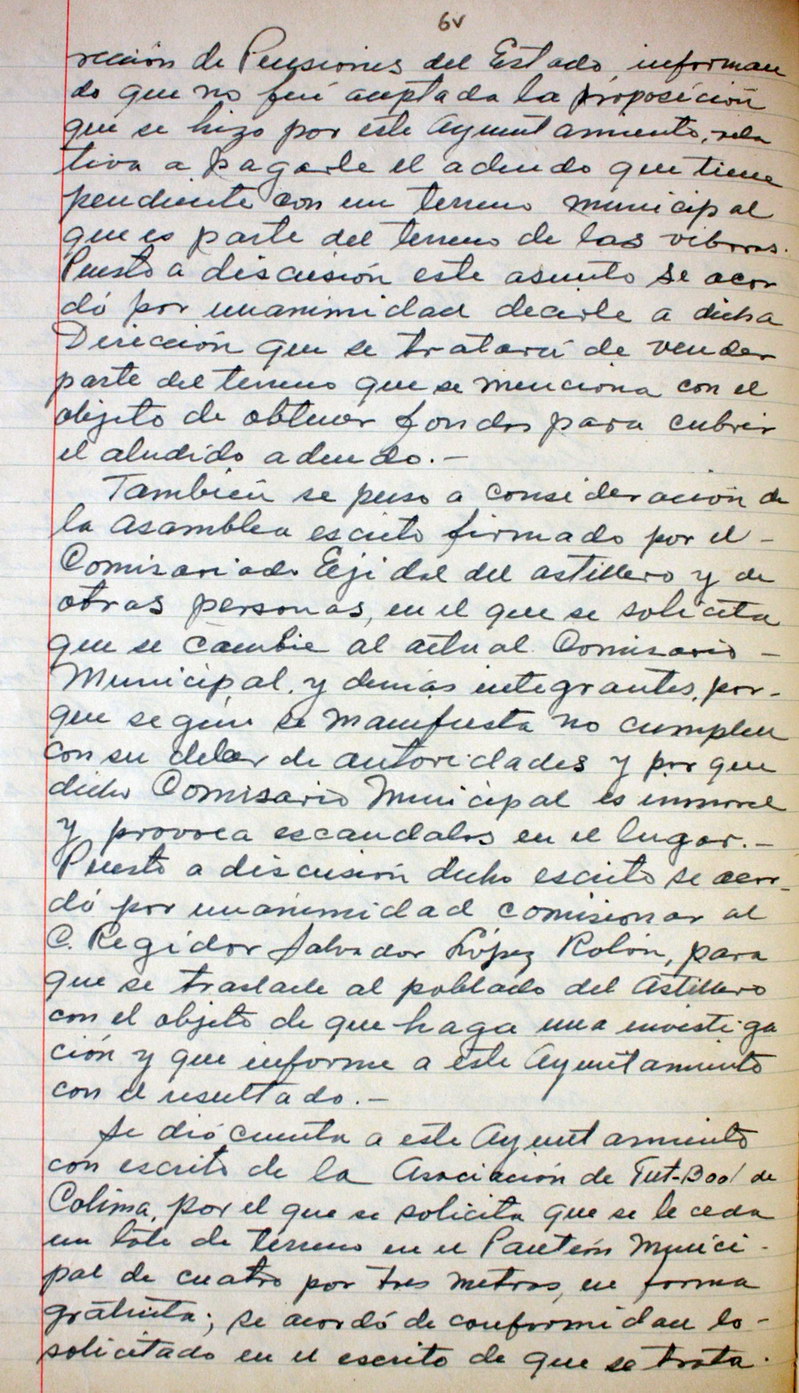 6v
rección de Pensiones del Estado, informan
do que no fué aceptada la proposición
que se hizo por este Ayuntamiento, rela
tiva a pagarle el adeudo que tiene
pendiente con un terreno municipal
que es parte del terreno de las viboras.
Puesto a discusión este asunto se acor
dó por unanimidad decirle a dicha
Dirección que se tratará de vender
parte del terreno que se menciona con el
objeto de obtener fondos para cubrir
el aludido adeudo.-
También se puso a consideración de
la asamblea escrito firmado por el -
Comisariado Ejidal del astillero y de
otras personas, en el que se solicita
que se cambie al actual Comisario -
Municipal, y demás integrantes, por-
que según se manifiesta no cumplen
con su deber de autoridades y por que
dicho Comisario Municipal es inmoral
y provoca escandalos en el lugar.-
Puesto a discusión dicho escrito se acor-
dó por unanimidad comisionar al
C. Regidor Salvador López Rolón, para
que se traslade al poblado del Astillero
con el objeto de que haga una investiga
ción y que informe a este Ayuntamiento
con el resultado.-
Se dió cuenta a este Ayuntamiento
con escrito de la Asociación de Fut-Bool de
Colima, por el que se solicita que se le ceda
un lote de terreno en el Panteón Munici-
pal de cuatro por tres metros, en forma
gratuita; se acordó de conformidad lo -
solicitado en el escrito de que se trata.